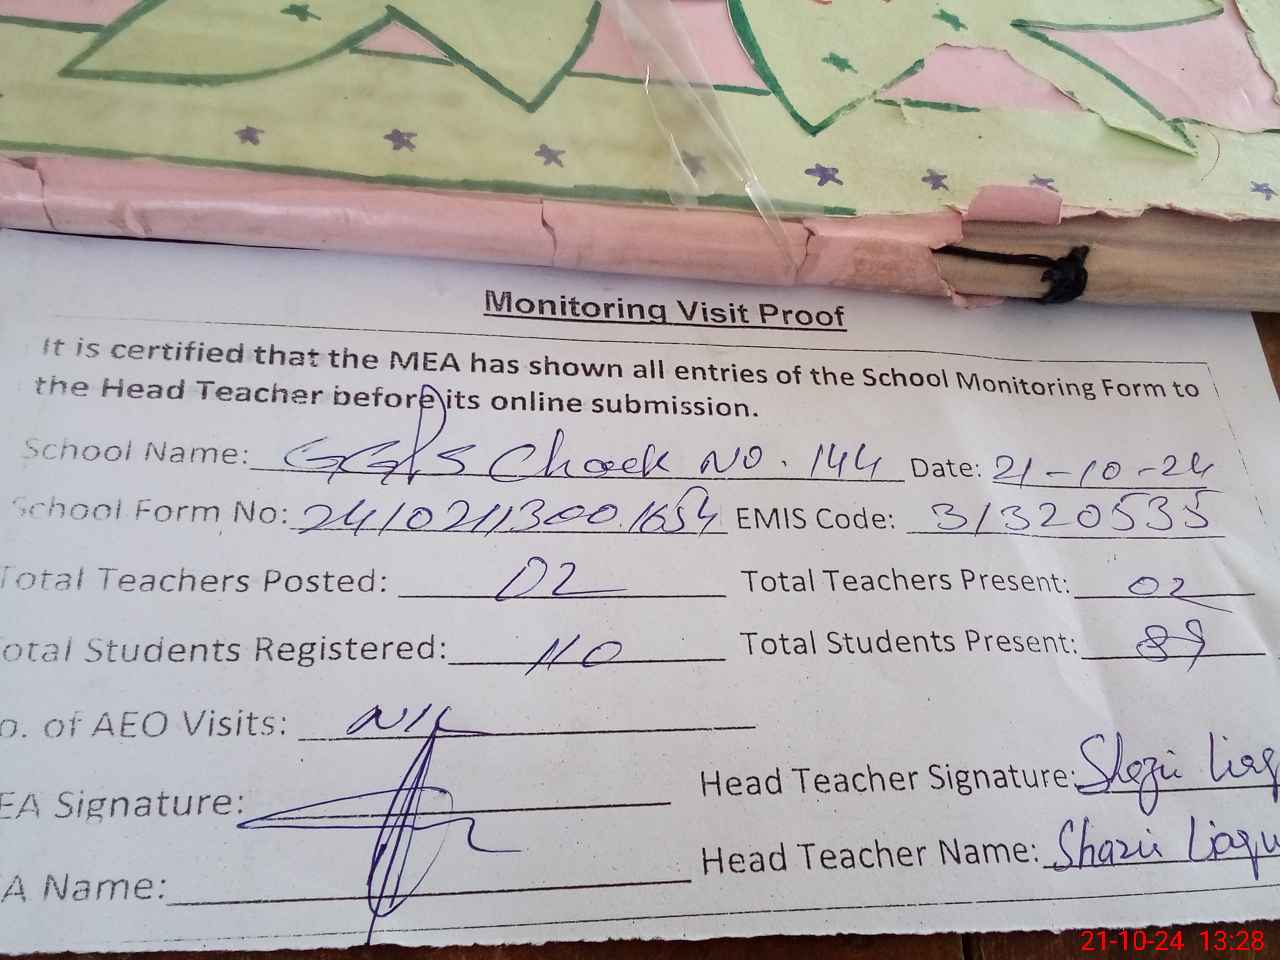 Monitoring Visit Proof
It is certified that the MEA has shown all entries of the School Monitoring Form to
the Head Teacher before its online submission.
School Name: GGPS Chack NO. 144 Date: 21-10-24
School Form No: EMIS Code: 31320535
Total Teachers Posted: 02 Total Teachers Present: 02
otal Students Registered: 110 Total Students Present: 89
o. of AEO Visits: NIL
EA Signature: Head Teacher Signature:
A Name: Head Teacher Name:
21-10-24 13:28